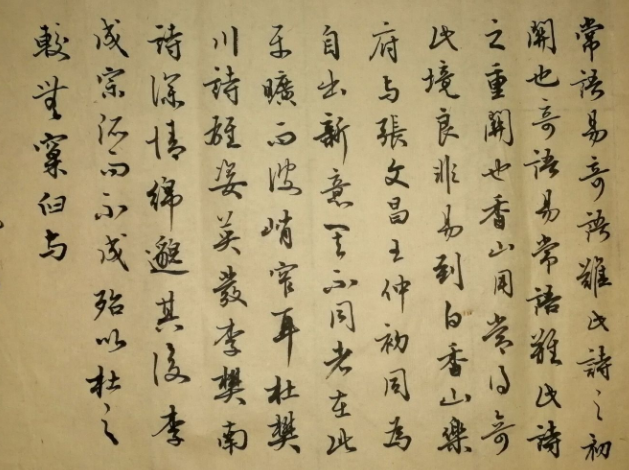 常語易奇語難此詩之初
關也奇語易常語難此詩
之重關也香山用常得奇
此境良非易到白香山樂
府与張文昌王仲初同為
自出新意其不同者在此
平曠而彼峭窄耳杜樊
川詩雄姿英發李樊南
詩深情綿邈其後李
成宗派而不成殆以杜之
較無窠臼与